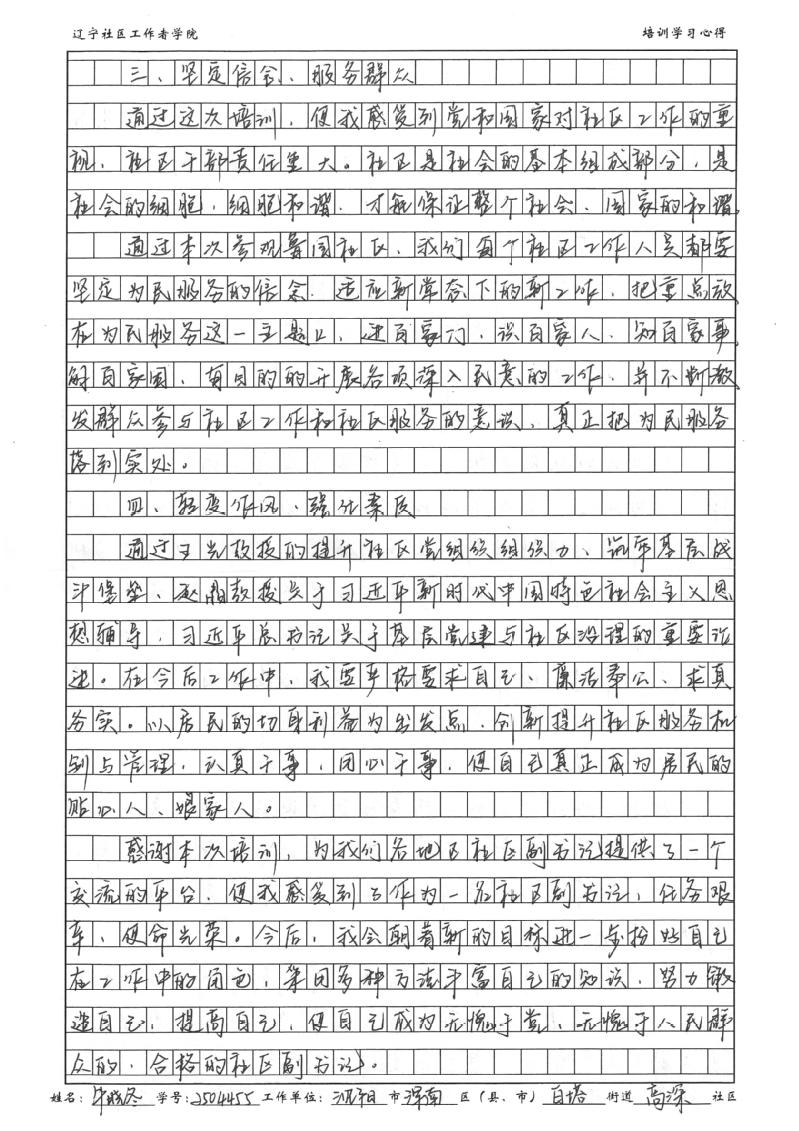 辽宁社区工作者学院 培训学习心得
三、坚定信念、服务群众
通过这次培训，使我感觉到党和国家对社区工作的重
视，社区干部责任重大。社区是社会的基本组成部分，是
社会的细胞，细胞和谐，才能保证整个社会、国家的和谐，
通过本次参观馨园社区，我们每个社区工作人员都要
坚定为民服务的信念，适应新常态下的新工作，把重点放
在为民服务这一主题上，进百家门，识百家人，知百家事，
解百家困，有目的的开展各项深入民意的工作，并不断激
发群众参与社区工作和社区服务的意识，真正把为民服务
落到实处。
四、转变作风、强化素质
通过王光教授的提升社区党组织组织力、筑牢基层战
斗堡垒，赵晶教授关于习近平新时代中国特色社会主义思
想辅导，习近平总书记关于基层党建与社区治理的重要论
述。在今后工作中，我要严格要求自己、廉洁奉公、求真
务实。以居民的切身利益为出发点，创新提升社区服务机
制与管理，认真干事，团心干事，使自己真正成为居民的
贴心人、娘家人。
感谢本次培训，为我们各地区社区副书记提供了一个
交流的平台，使我感受到了作为一名社区副书记，任务艰
辛，使命光荣。今后，我会朝着新的目标进一步扮好自己
在工作中的角色，采用多种方法丰富自己的知识，努力锻
造自己，提高自己，使自己成为无愧于党，无愧于人民群
众的，合格的社区副书记。
姓名：牛晓冬 学号：2504455 工作单位：沈阳 市 浑南 区（县、市）白塔 街道 高深 社区